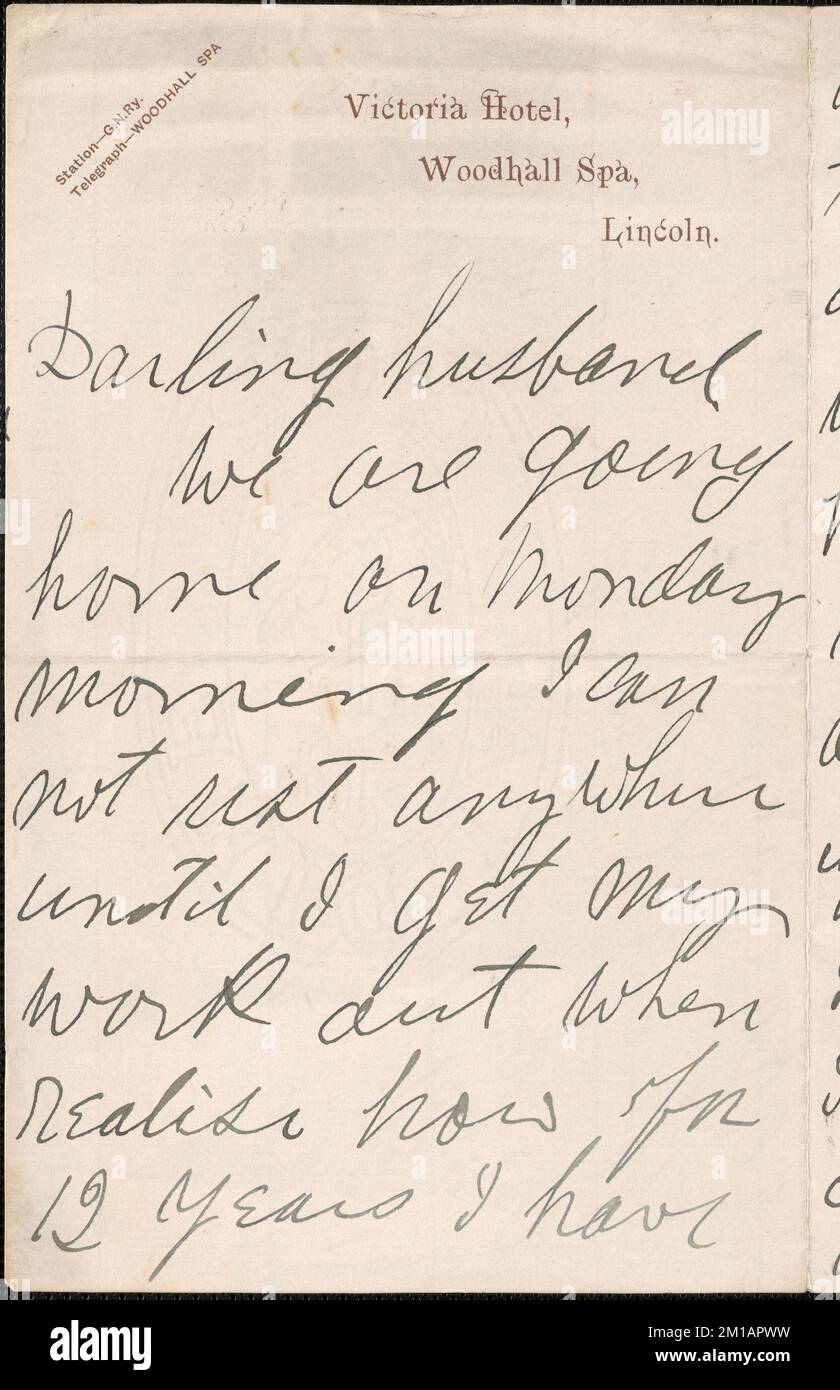 Station—G.N.Ry.
Telegraph—WOODHALL SPA
Victoria Hotel,
Woodhall Spa,
Lincoln.
Darling husband
We are going
home on Monday
morning I can
not rest anywhere
until I get my
work out when
realise how for
12 years I have
alamy
Image ID: 2M1APWW
www.alamy.com